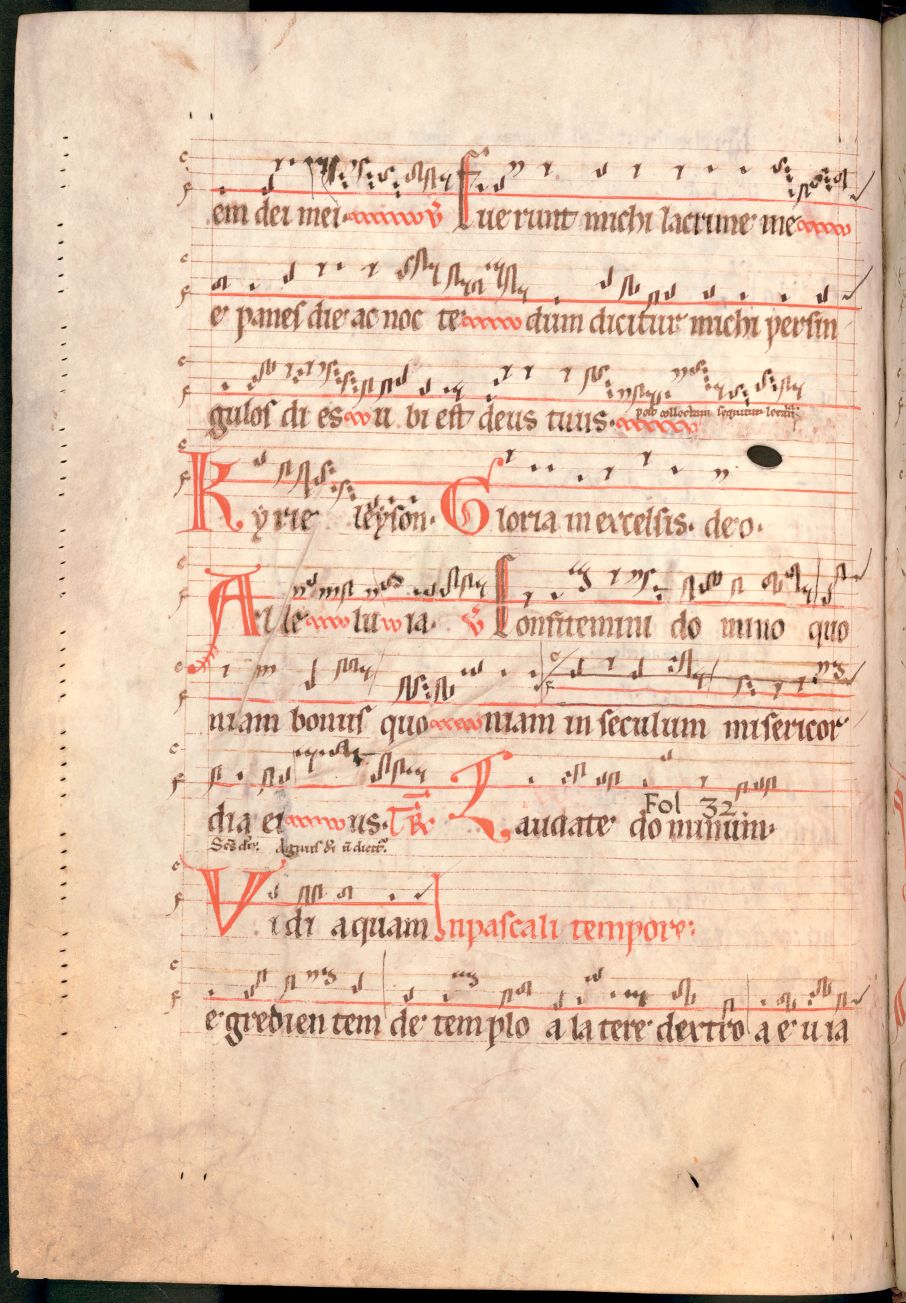 em dei mei. V̄ Fuerunt michi lacrime me
e panes die ac noc te dum dicitur michi per sin
gulos di es u bi est deus tuus. post collectam sequitur
Kyrie leyson. Gloria in excelsis. deo.
Al le lu ia. V̄ Confitemini do mino quo
niam bonus quo niam in seculum misericor
dia ei us. Tr̄ Laudate dominum.
Fol 32
Vidi aquam In pascali tempore:
e gredien tem de templo a la tere dextro a e u ia